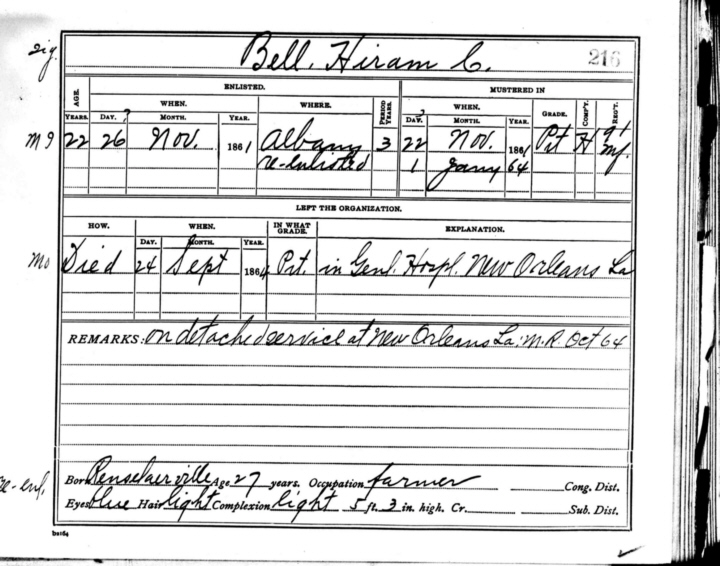 sig.
Bell, Hiram C.
216
ENLISTED. MUSTERED IN
AGE. WHEN. WHERE. PERIOD YEARS. WHEN. GRADE. COMP'Y. REG'T.
YEARS. DAY. ? MONTH. YEAR. DAY. ? MONTH. YEAR.
22 26 Nov. 1861 Albany 3 22 Nov. 1861 Pvt H 91
re-enlisted 1 Jany 64
LEFT THE ORGANIZATION.
HOW. WHEN. IN WHAT GRADE. EXPLANATION.
DAY. MONTH. YEAR.
Mo Died 24 Sept 1864 Pvt. in Genl. Hospl. New Orleans La
REMARKS: on detached service at New Orleans La. M.R. Oct 64
re-enl.
Born Renselaerville Age 27 years. Occupation farmer Cong. Dist.
Eyes blue Hair light Complexion light 5 ft. 3 in. high. Cr. Sub. Dist.